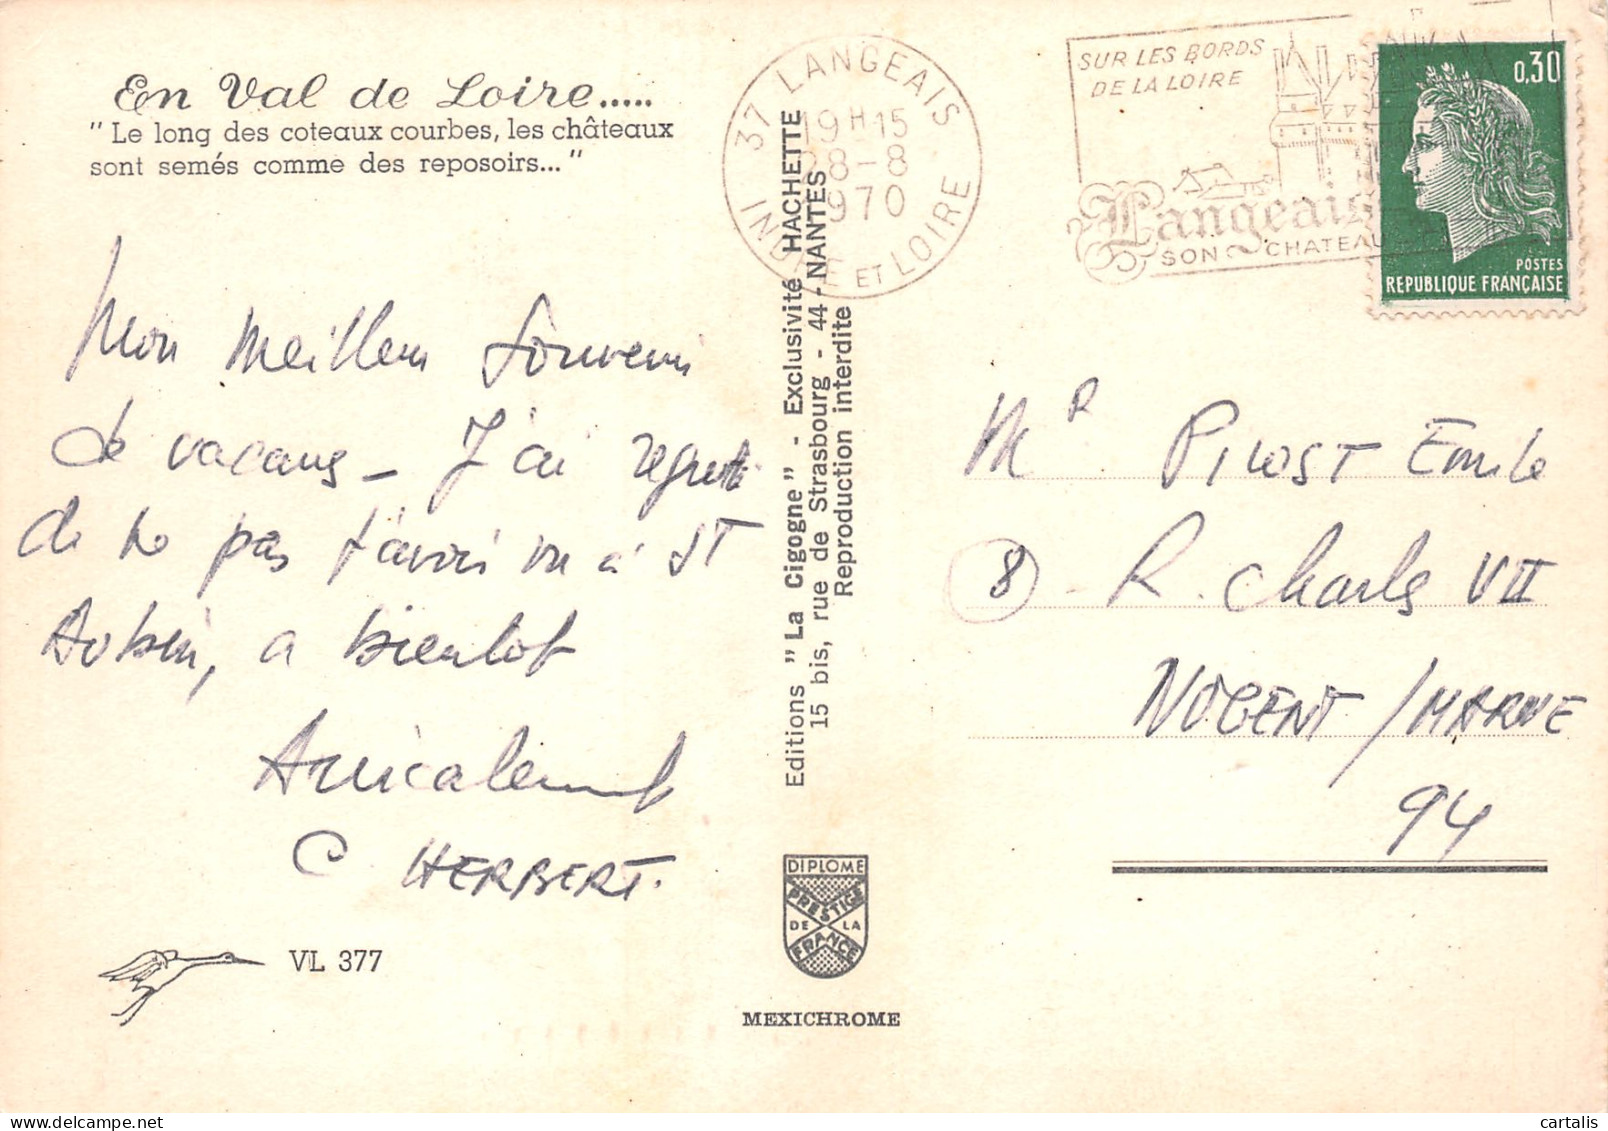 En Val de Loire.....
"Le long des coteaux courbes, les châteaux
sont semés comme des reposoirs..."
Mon meilleur souvenir
de vacances - J'ai regretté
de ne pas t'avoir vu à ST
Aubin, a bientot
Amicalement
C HERBERT.
VL 377
Editions "La Cigogne" - Exclusivité HACHETTE
15 bis, rue de Strasbourg - 44 - NANTES
Reproduction interdite
DIPLOME
PRESTIGE
DE LA
FRANCE
MEXICHROME
37 LANGEAIS
19H15
28-8
1970
INDRE ET LOIRE
SUR LES BORDS
DE LA LOIRE
Langeais
SON CHATEAU
0,30
POSTES
REPUBLIQUE FRANÇAISE
MR Emile
8 - R. Charles VII
NOGENT / MARNE
94
cartalis